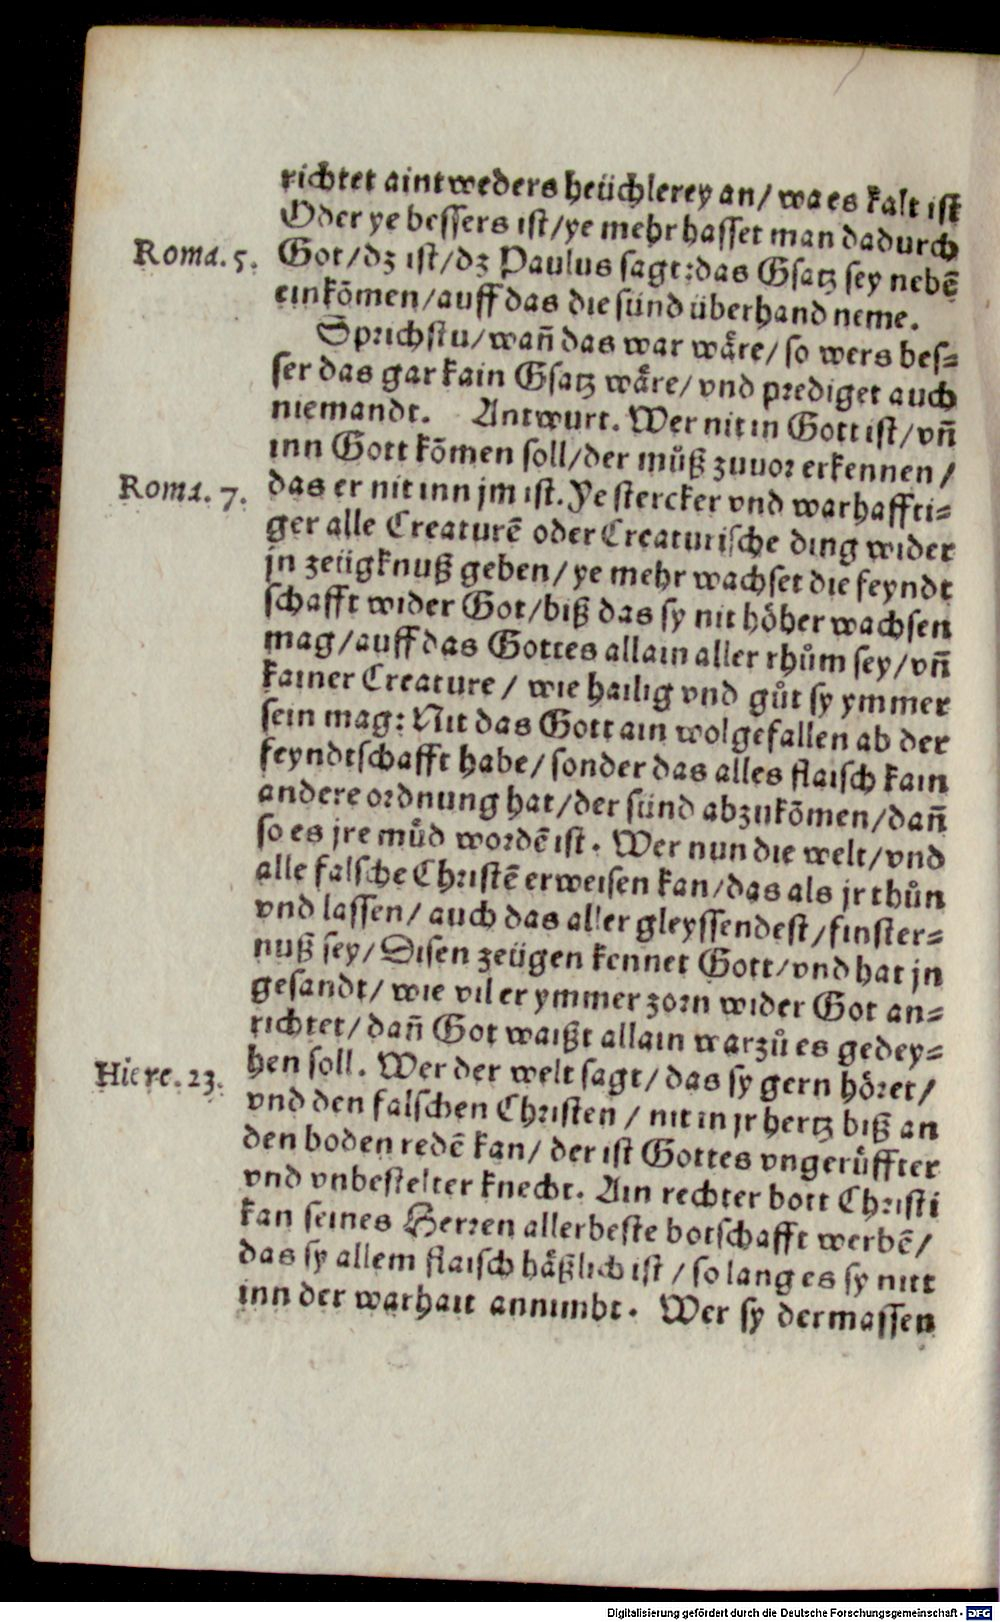 richtet aintweders heüchlerey an/ wa es kalt ist
Oder ye bessers ist/ye mehr hasset man dadurch
Roma. 5. Got/dz ist/dz Paulus sagt:das Gsatz sey nebē
einkōmen/auff das die sünd überhand neme.
Sprichstu/wañ das war wåre/ so wers bes=
ser das gar kain Gsatz wåre/ vnd prediget auch
niemandt. Antwurt. Wer nit in Gott ist/vñ
inn Gott kōmen soll/der můß zuuor erkennen/
Roma. 7. das er nit inn jm ist. Ye stercker vnd warhaffti=
ger alle Creaturē oder Creaturische ding wider
jn zeügknuß geben/ ye mehr wachset die feyndt
schafft wider Got/biß das sy nit höher wachsen
mag/auff das Gottes allain aller rhům sey/vñ
kainer Creature/ wie hailig vnd gůt sy ymmer
sein mag: Nit das Gott ain wolgefallen ab der
feyndtschafft habe/ sonder das alles flaisch kain
andere ordnung hat/der sünd abzukōmen/dañ
so es jre můd wordē ist. Wer nun die welt/vnd
alle falsche Christē erweisen kan/das als jr thůn
vnd lassen/ auch das aller gleyssendest/finster=
nuß sey/Disen zeügen kennet Gott/vnd hat jn
gesandt/ wie vil er ymmer zorn wider Got an=
richtet/dañ Got waißt allain warzů es gedey=
Hiere. 23. hen soll. Wer der welt sagt/das sy gern höret/
vnd den falschen Christen/ nit in jr hertz biß an
den boden redē kan/ der ist Gottes vngerůffter
vnd vnbestelter knecht. Ain rechter bott Christi
kan seines Herren allerbeste botschafft werbē/
das sy allem flaisch håßlich ist/so lang es sy nitt
inn der warhait annimbt. Wer sy dermassen
Digitalisierung gefördert durch die Deutsche Forschungsgemeinschaft - DFG